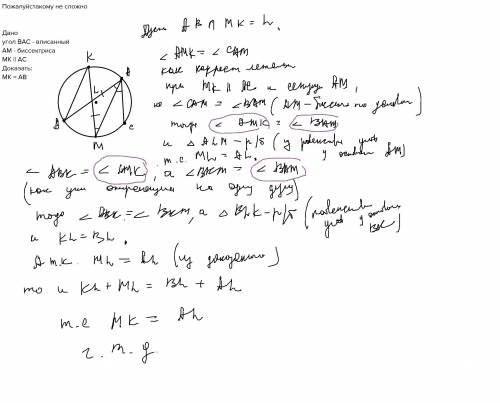 Пожалуйстакому не сложно
Дано
угол BAC - вписанный
AM - биссектриса
MK || AC
Доказать:
MK = AB
K
L
M
C
AB ∩ MK = L.
∠ AMK = ∠ CAM
как
при MK || AC и секущ AM,
но ∠ CAM = ∠ BAM (AM - по условию)
тогда ∠ AMK = ∠ BAM
и △ ALM - р/б (у равенство углов
у основания AM)
т.е. ML = AL.
∠ ABK = ∠ AMK, а ∠ BKM = ∠ BAM
(как углы опирающиеся на одну дугу)
тогда ∠ ABK = ∠ BKM, а △ BLK - р/б (равенство
углов у основания
BK)
и KL = BL.
А т.к. ML = AL (из доказанного)
то и KL + ML = BL + AL
т.е MK = AB
ч. т. д.